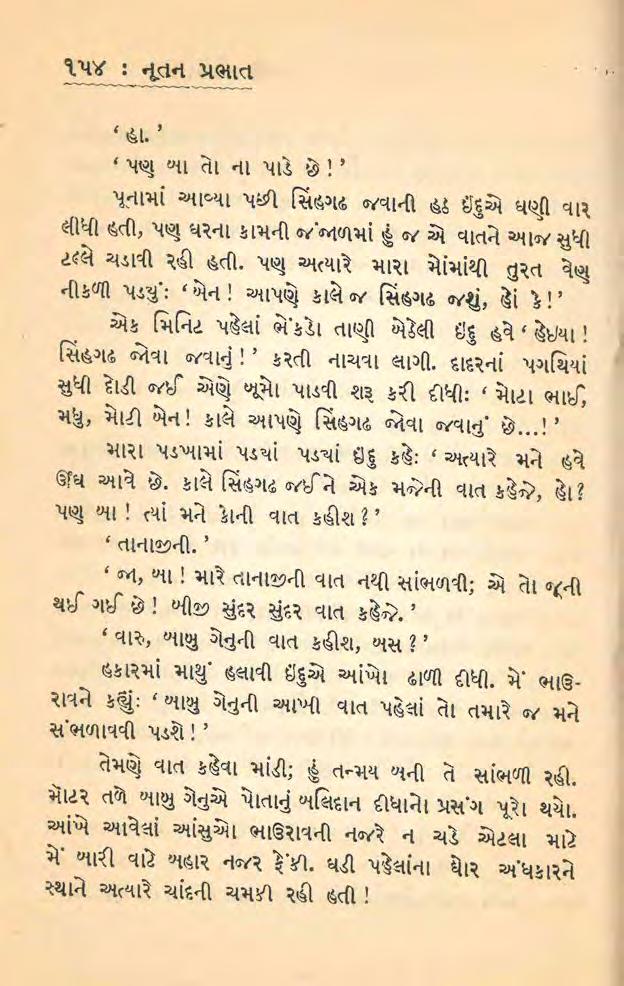 ૧૫૪ : નૂતન પ્રભાત
‘ હા. ’
‘ પણ બા તો ના પાડે છે ! ’
પૂનામાં આવ્યા પછી સિંહગઢ જવાની હઠ ઇંદુએ ઘણી વાર
લીધી હતી, પણ ઘરના કામની જંજાળમાં હું જ એ વાતને આજ સુધી
ટલ્લે ચડાવી રહી હતી. પણ અત્યારે મારા મોંમાંથી તુરત વેણ
નીકળી પડ્યુંઃ ‘ બેન ! આપણે કાલે જ સિંહગઢ જશું, હોં કે ! ’
એક મિનિટ પહેલાં ભેંકડો તાણી બેઠેલી ઇંદુ હવે ‘ હેઇયા !
સિંહગઢ જોવા જવાનું ! ’ કરતી નાચવા લાગી. દાદરનાં પગથિયાં
સુધી દોડી જઈ એણે બૂમો પાડવી શરૂ કરી દીધીઃ ‘ મોટા ભાઈ,
મધુ, મોટી બેન ! કાલે આપણે સિંહગઢ જોવા જવાનું છે...! ’
મારા પડખામાં પડ્યાં પડ્યાં ઇંદુ કહેઃ ‘ અત્યારે મને હવે
ઊંઘ આવે છે. કાલે સિંહગઢ જઈને એક મજેની વાત કહેજે, હો ?
પણ બા ! ત્યાં મને કોની વાત કહીશ ? ’
‘ તાનાજીની. ’
‘ જા, બા ! મારે તાનાજીની વાત નથી સાંભળવી; એ તો જૂની
થઈ ગઈ છે ! બીજી સુંદર સુંદર વાત કહેજે. ’
‘ વારુ, બાબુ ગેનુની વાત કહીશ, બસ ? ’
હકારમાં માથું હલાવી ઇંદુએ આંખો ઢાળી દીધી. મેં ભાઉ-
રાવને કહ્યુંઃ ‘ બાબુ ગેનુની આખી વાત પહેલાં તો તમારે જ મને
સંભળાવવી પડશે ! ’
તેમણે વાત કહેવા માંડી; હું તન્મય બની તે સાંભળી રહી.
મૉટર તળે બાબુ ગેનુએ પોતાનું બલિદાન દીધાનો પ્રસંગ પૂરો થયો.
આંખે આવેલાં આંસુઓ ભાઉરાવની નજરે ન ચડે એટલા માટે
મેં બારી વાટે બહાર નજર ફેંકી. ઘડી પહેલાંના ઘોર અંધકારને
સ્થાને અત્યારે ચાંદની ચમકી રહી હતી !